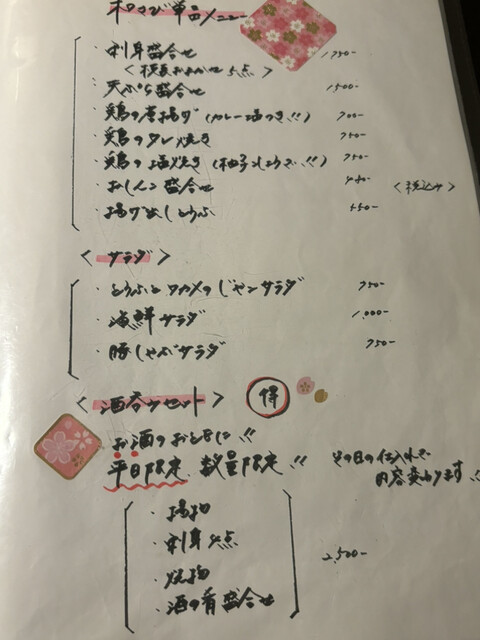 わさび単品メニュー
・刺身盛合せ 1,750-
<板長おまかせ5点>
・天ぷら盛合せ 1500-
・鶏の唐揚げ(カレー塩つき!!) 700-
・鶏のタレ焼き 750-
・鶏の塩焼き(柚子こしょうで!!) 750-
・おしんこ盛合せ
<税込み>
・揚げ出しとうふ 550-
<サラダ>
・とうふとワカメのじゃこサラダ 750-
・海鮮サラダ 1,000-
・豚しゃぶサラダ 750-
<酒呑みセット> 得
お酒のおともに!!
平日限定、数量限定!!
その日の仕入れで
内容変わります!!
・揚物
・刺身
・焼物
・酒の肴盛合せ
2,500-